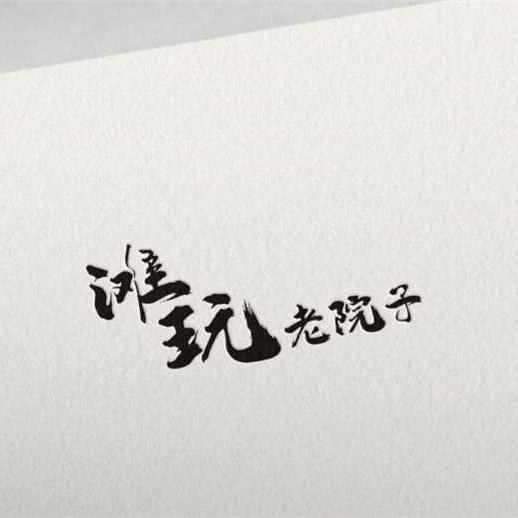 滩玩老院子